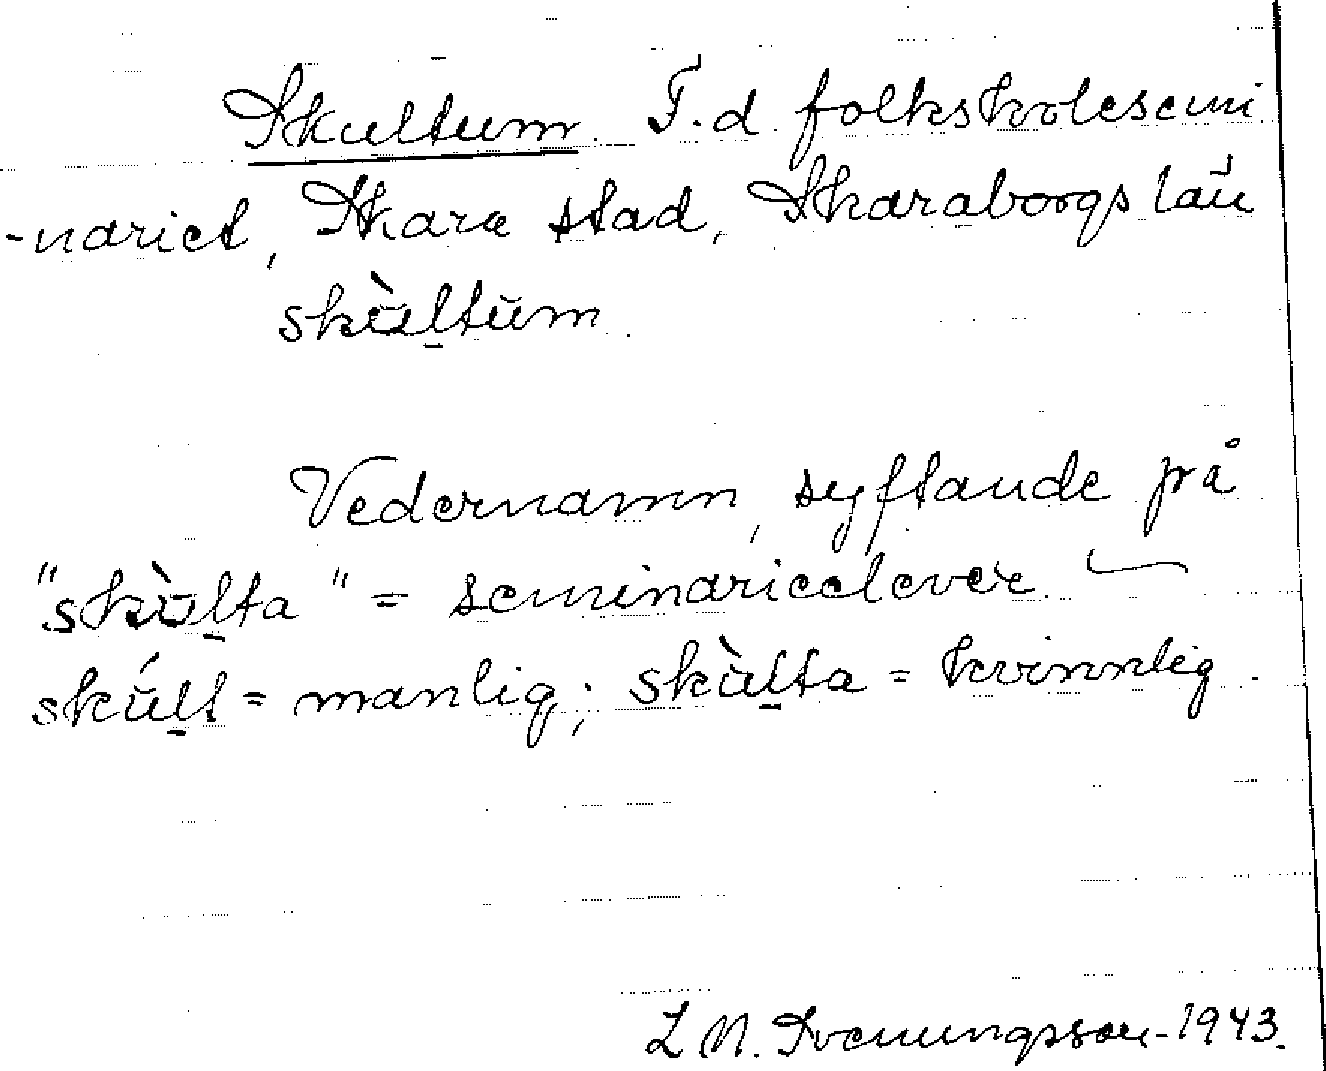 Skultum. F.d. folkskolesemi
-nariet, Skara stad, Skaraborgs län
skùltŭm.
Vedernamn, syftande på
"skùlta" = seminarieelever. —
skúlt = manlig; skùlta = kvinnlig.
L M. Svenungsson - 1943.